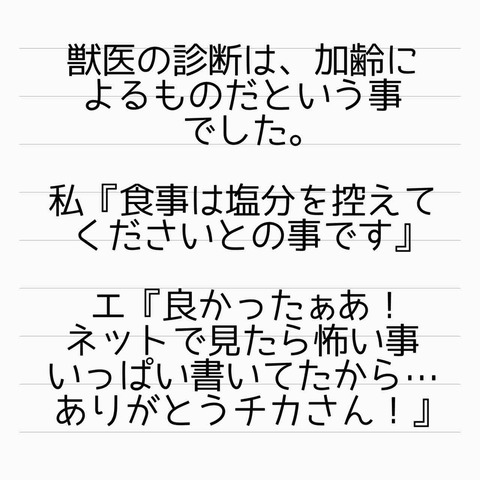 獣医の診断は、加齢に
よるものだという事
でした。
私『食事は塩分を控えて
くださいとの事です』
エ『良かったぁあ！
ネットで見たら怖い事
いっぱい書いてたから…
ありがとうチカさん！』